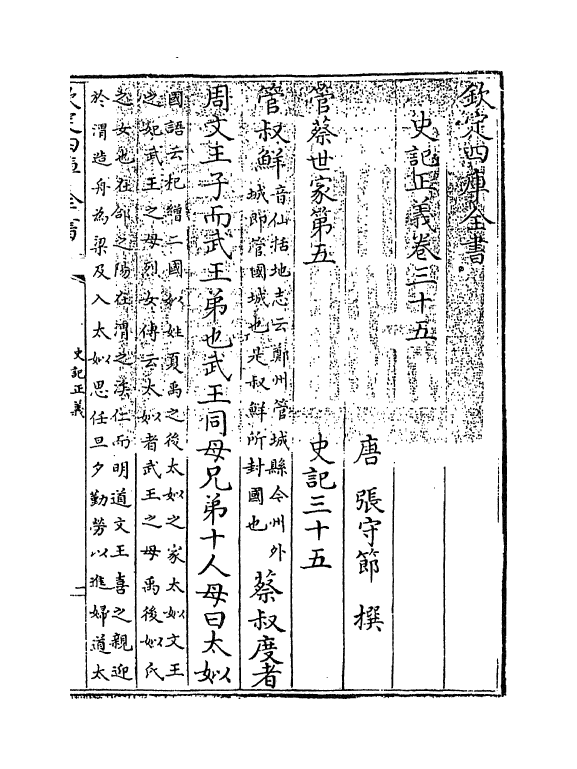 欽定四庫全書
史記正義卷三十五
唐 張守節 撰
管蔡世家第五 史記三十五
管叔鮮
音仙括地志云鄭州管城縣今州外
城即管國城也是叔鮮所封國也
蔡叔度者
周文王子而武王弟也武王同母兄弟十人母曰太姒
國語云杞繒二國姒姓夏禹之後太姒之家太姒文王
之妃武王之母烈女傳云太姒者武王之母禹後姒氏
之女也在郃之陽在渭之涘仁而明道文王喜之親迎
於渭造舟為梁及入太姒思任旦夕勤勞以進婦道太
史記正義